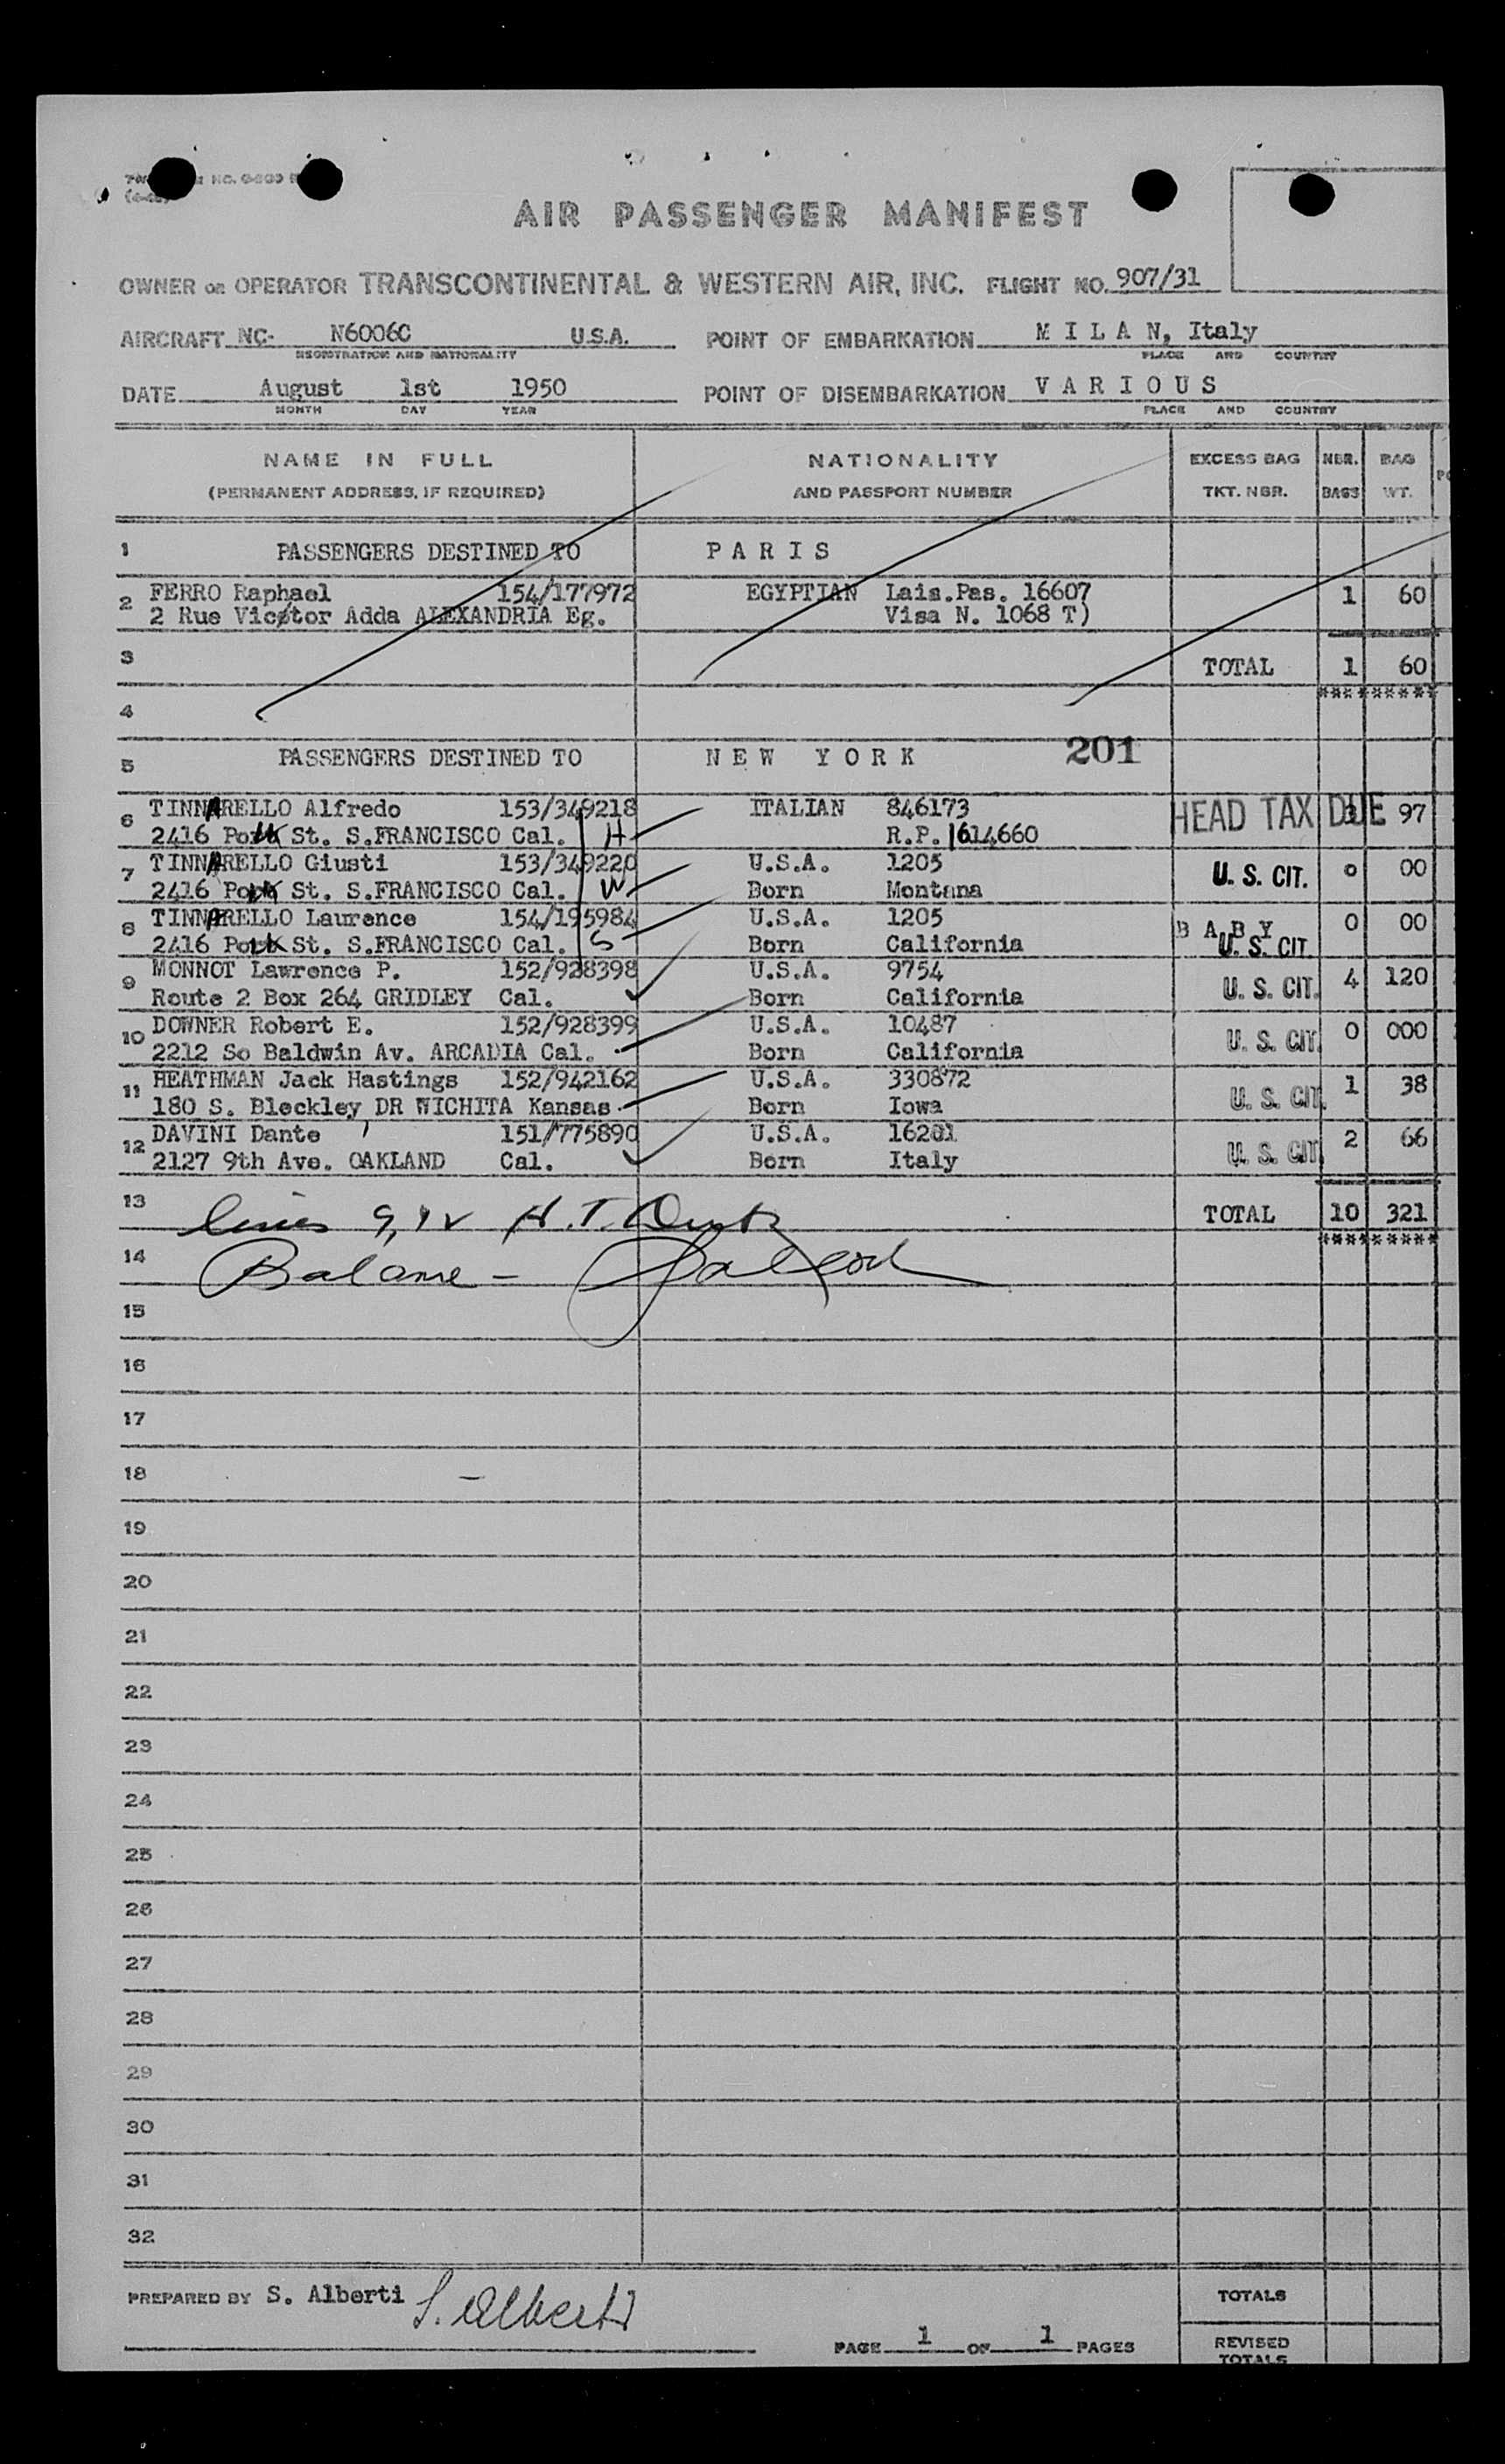 AIR PASSENGER MANIFEST
OWNER OR OPERATOR TRANSCONTINENTAL & WESTERN AIR, INC. FLIGHT NO. 907/31
AIRCRAFT NC- N6006C U.S.A. POINT OF EMBARKATION M I L A N, Italy
REGISTRATION AND NATIONALITY PLACE AND COUNTRY
DATE August 1st 1950 POINT OF DISEMBARKATION V A R I O U S
MONTH DAY YEAR PLACE AND COUNTRY
NAME IN FULL NATIONALITY EXCESS BAG NBR. BAG
(PERMANENT ADDRESS, IF REQUIRED) AND PASSPORT NUMBER TKT. NBR. BAGS WT.
1 PASSENGERS DESTINED TO P A R I S
2 FERRO Raphael 154/177972 EGYPTIAN Lais.Pas. 16607 1 60
2 Rue Victor Adda ALEXANDRIA Eg. Visa N. 1068 T)
3 TOTAL 1 60
*** ******
4
5 PASSENGERS DESTINED TO N E W Y O R K 201
6 TINNARELLO Alfredo 153/349218 ITALIAN 846173 HEAD TAX DUE 3 97
2416 Polk St. S.FRANCISCO Cal. H R.P. 1614660
7 TINNARELLO Giusti 153/349220 U.S.A. 1205 U. S. CIT. 0 00
2416 Polk St. S.FRANCISCO Cal. W Born Montana
8 TINNARELLO Laurence 154/195984 U.S.A. 1205 B A B Y 0 00
2416 Polk St. S.FRANCISCO Cal. S Born California U. S. CIT.
9 MONNOT Lawrence P. 152/928398 U.S.A. 9754 U. S. CIT. 4 120
Route 2 Box 264 GRIDLEY Cal. Born California
10 DOWNER Robert E. 152/928399 U.S.A. 10487 U. S. CIT. 0 000
2212 So Baldwin Av. ARCADIA Cal. Born California
11 HEATHMAN Jack Hastings 152/942162 U.S.A. 330872 U. S. CIT. 1 38
180 S. Bleckley DR WICHITA Kansas Born Iowa
12 DAVINI Dante 151/775890 U.S.A. 16201 U. S. CIT. 2 66
2127 9th Ave. OAKLAND Cal. Born Italy
13 lines 9, 12 H.T. TOTAL 10 321
**** *****
14 Balance -
15
16
17
18
19
20
21
22
23
24
25
26
27
28
29
30
31
32
PREPARED BY S. Alberti S. Alberti TOTALS
PAGE 1 OF 1 PAGES REVISED
TOTALS